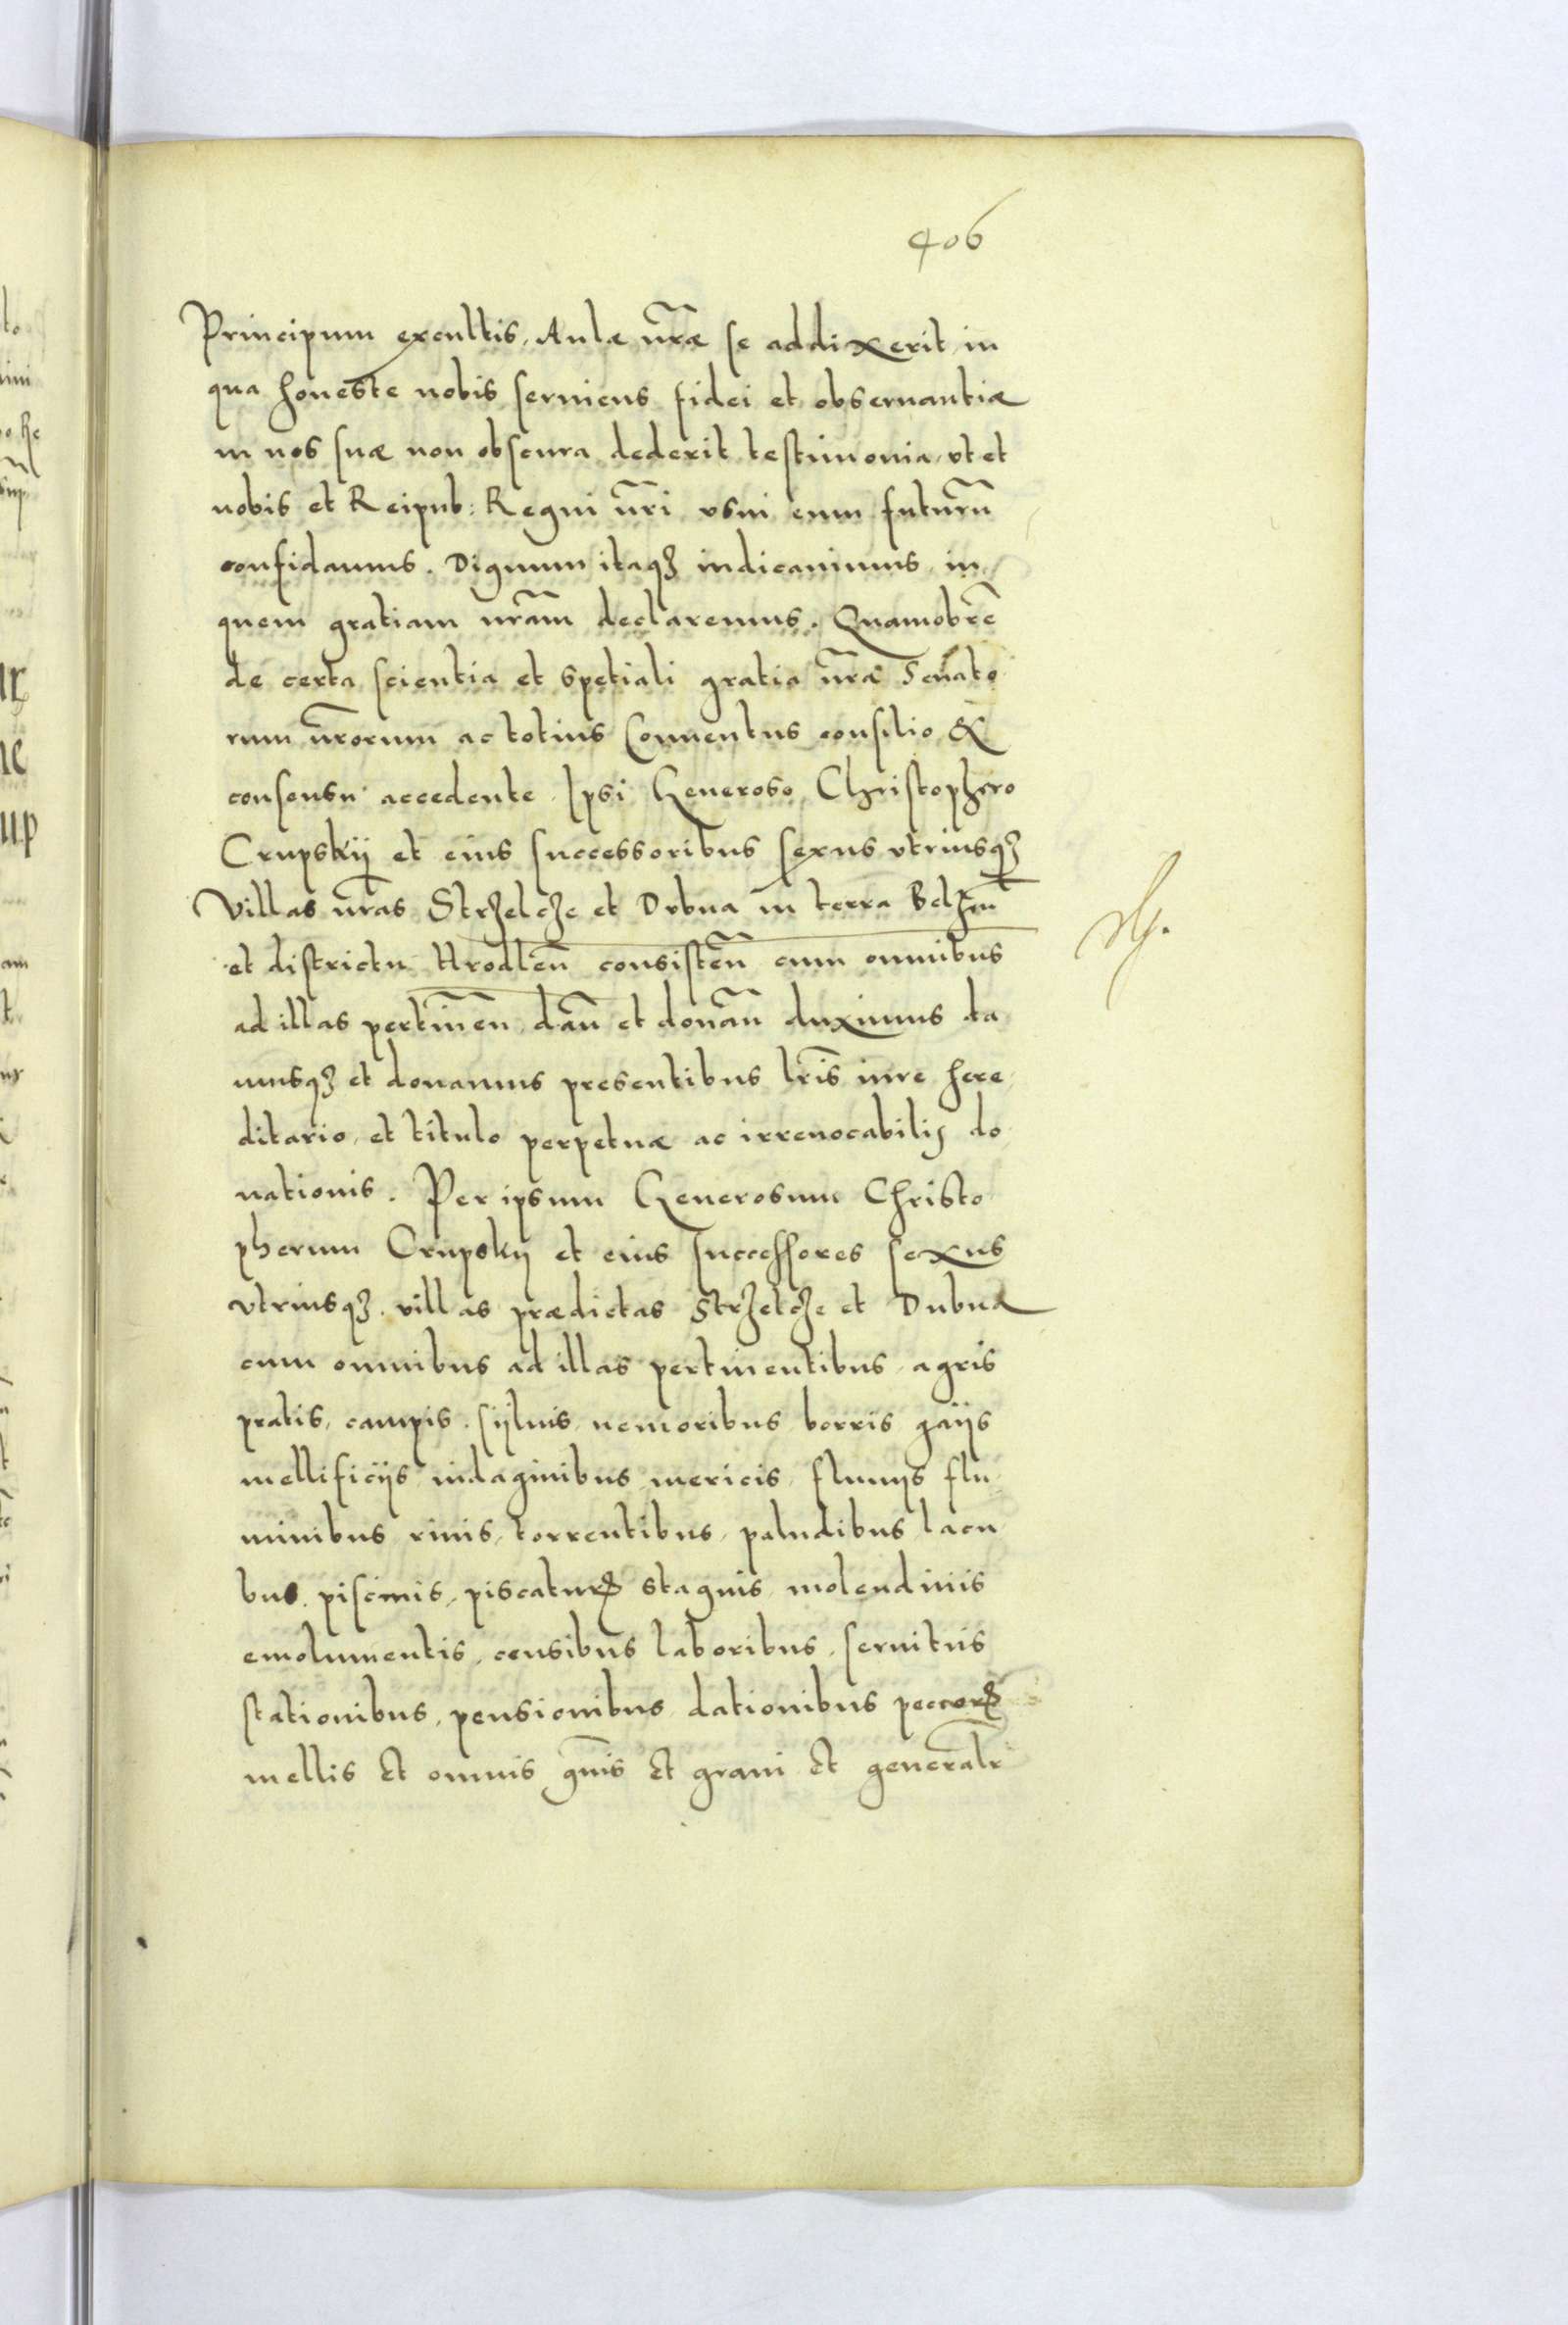 406
Principum excultis, Aulæ nr̃æ se addixerit, in
qua honeste nobis seruiens fidei et obseruantiæ
in nos suæ non obscura dederit testimonia, vt et
nobis et Reipub: Regni nr̃i vsui eum futurũ
confidamus. Dignum itaqʒ iudicauimus, in
quem gratiam nr̃am declaremus. Quamobrẽ
de certa scientia et spetiali gratia nr̃a Senato
rum nr̃orum ac totius Conuentus consilio &
consensu accedente. Ipsi Generoso Christophero
Crupskij et eius successoribus sexus vtriusqʒ
Villas nr̃as Strzelcze et Dvbna in terra Belzeñ
et districtu Hrodleñ consisteñ cum omnibus
ad illas pertineñ dañ et donañ duximus da
musqʒ et donamus presentibus lr̃is iure here
ditario, et titulo perpetuæ ac irreuocabilis do
nationis. Per ipsum Generosum Christo
pherum Crupskij et eius successores sexus
vtriusqʒ. villas prædictas Strzelcze et Dubna
cum omnibus ad illas pertinentibus, agris
pratis, campis. syluis nemoribus borris gaijs
mellificijs indaginibus mericis, fluuijs flu
minibus riuis, torrentibus, paludibus lacu
bus. piscinis, piscaturꝭ stagnis molendinis
emolumentis, censibus laboribus, seruitiis
stationibus, pensionibus dationibus pecorꝭ
mellis et omnis gñis et grani et generalr̃